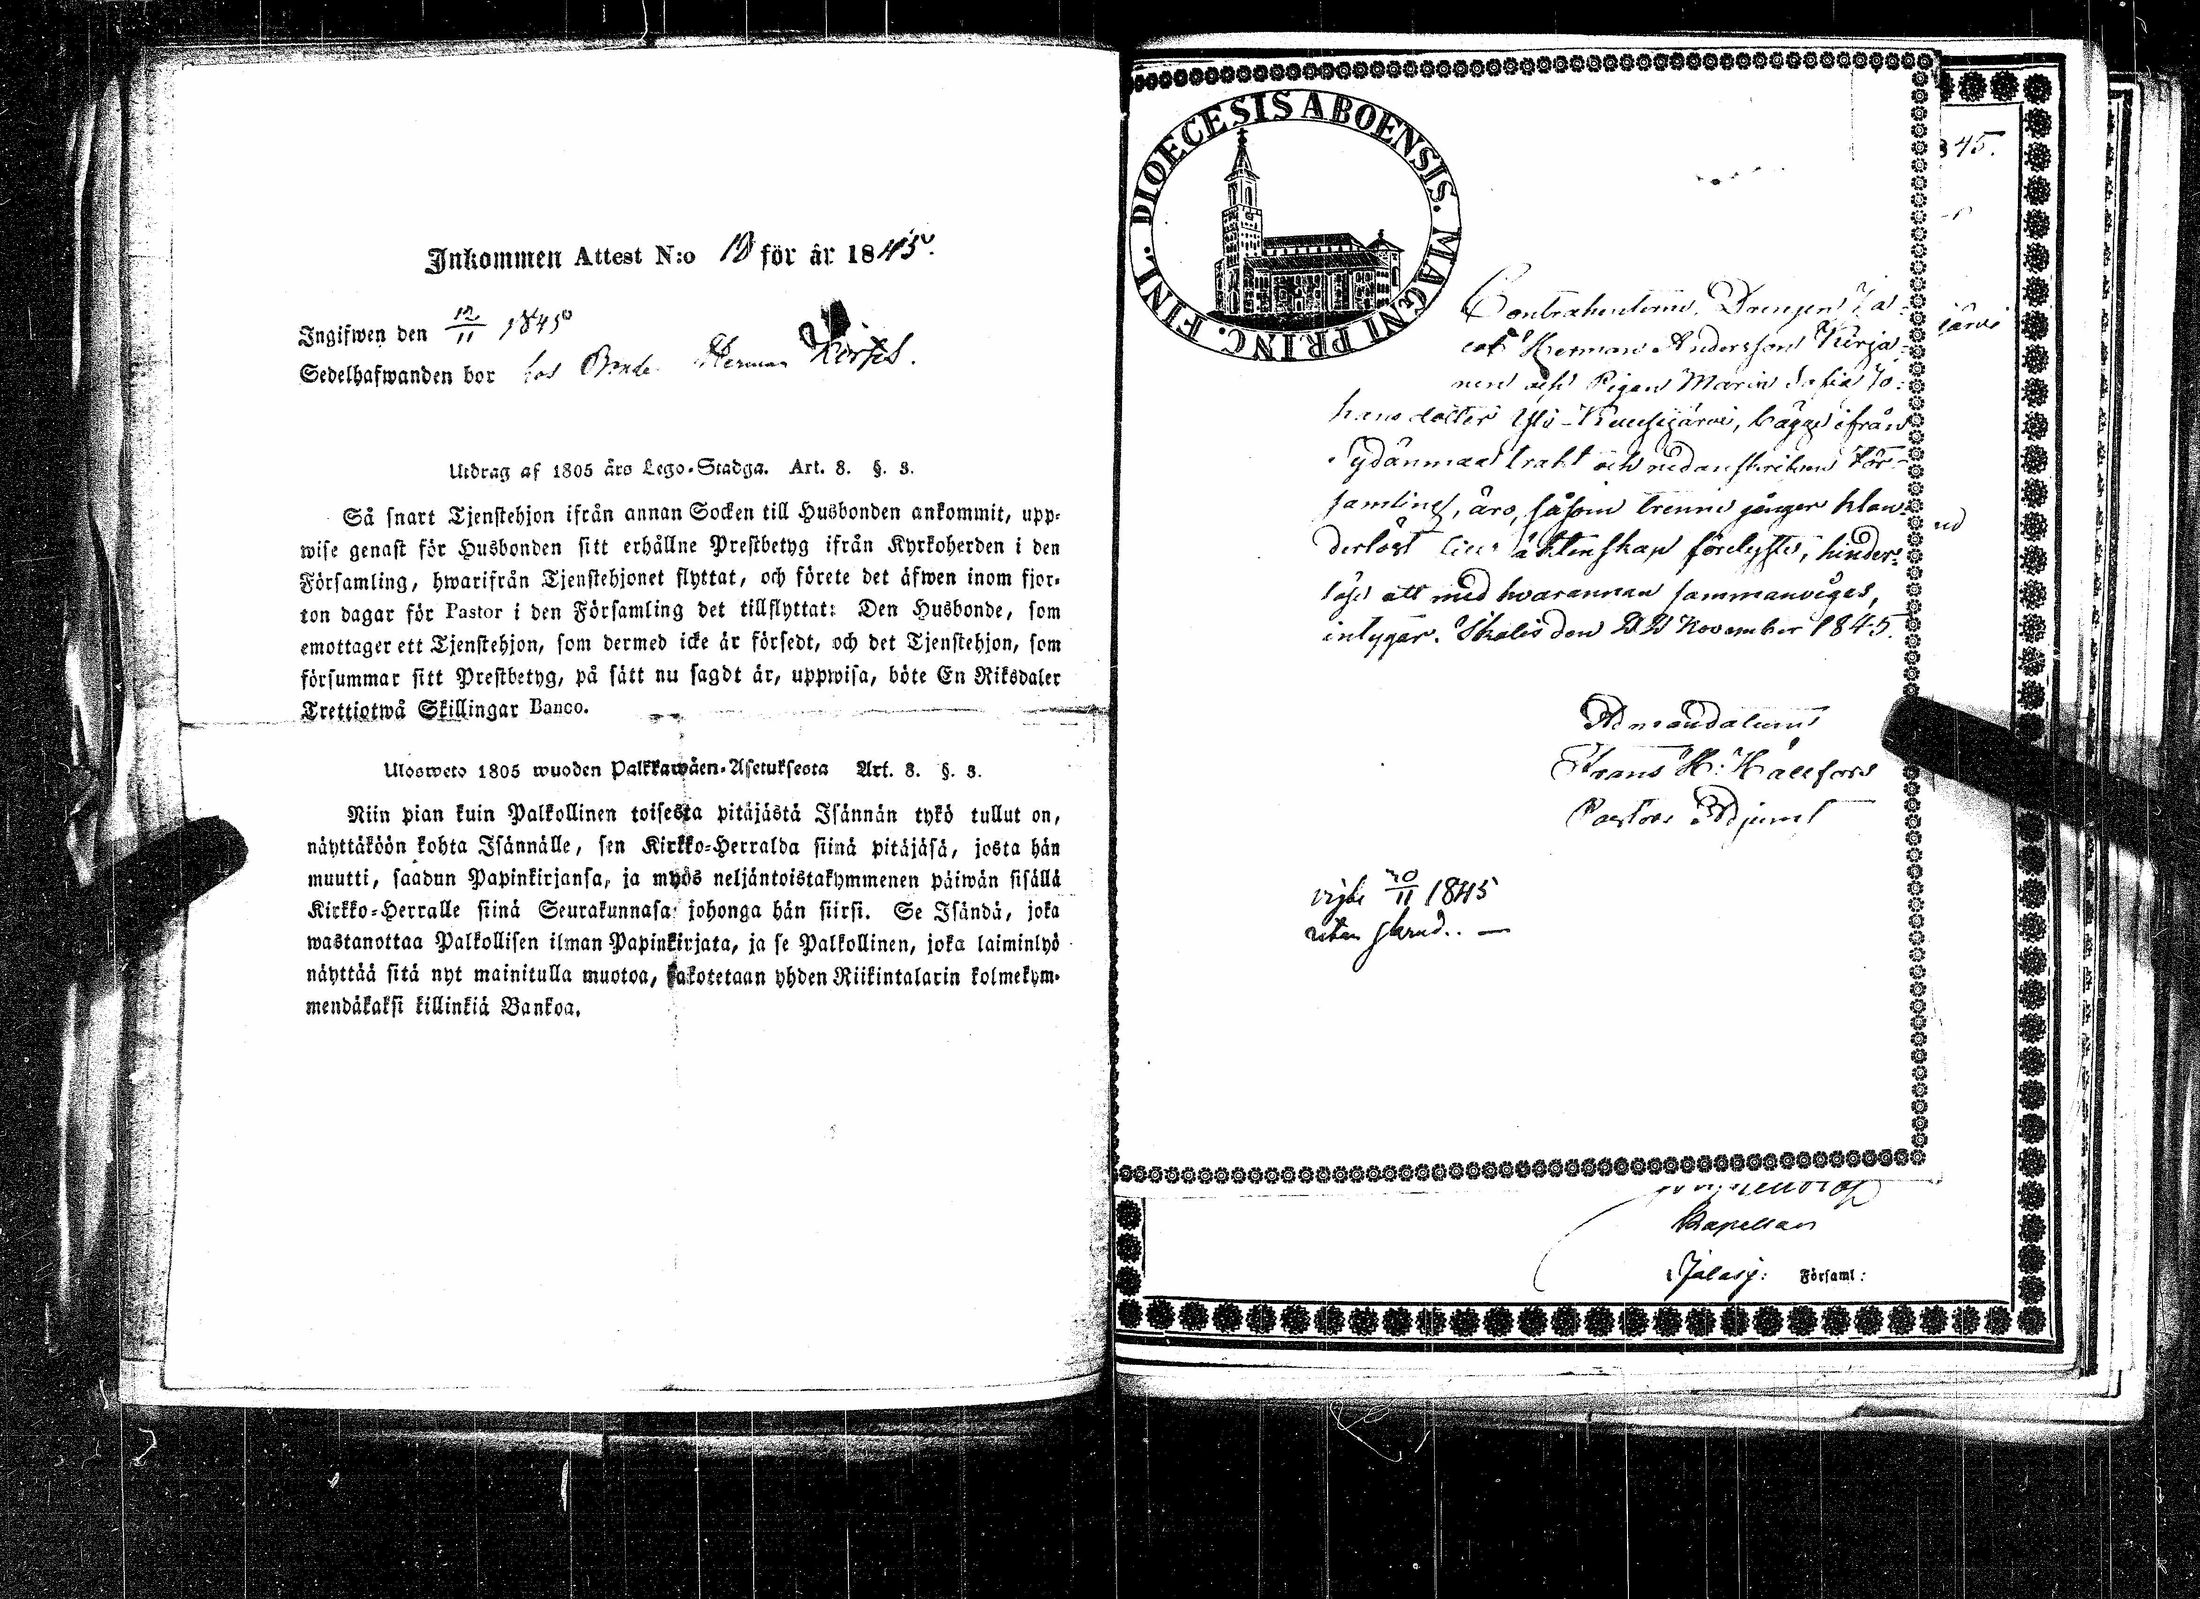 Inkommen Attest N:o 12 för år 1845.
Ingifwen den 12/11 1845
Sedelhafwanden bor hos Bonde Herman
Utdrag af 1805 års Lego-Stadga. Art. 8. §. 3.
Så snart Tjenstehjon ifrån annan Socken till Husbonden ankommit, upp-
wise genast för Husbonden sitt erhållne Prestbetyg ifrån Kyrkoherden i den
Församling, hwarifrån Tjenstehjonet flyttat, och förete det äfwen inom fjor-
ton dagar för Pastor i den Församling det tillflyttat: Den Husbonde, som
emottager ett Tjenstehjon, som dermed icke är försedt, och det Tjenstehjon, som
försummar sitt Prestbetyg, på sätt nu sagdt är, uppwisa, böte En Riksdaler
Trettiotwå Skillingar Banco.
Ulosweto 1805 wuoden Palkkawäen-Asetuksesta Art. 8. §. 3.
Niin pian kuin Palkollinen toisesta pitäjästä Isännän tykö tullut on,
näyttäköön kohta Isännälle, sen Kirkko-Herralda siinä pitäjäsä, josta hän
muutti, saadun Papinkirjansa, ja myös neljäntoistakymmenen päiwän sisällä
Kirkko-Herralle siinä Seurakunnasa johonga hän siirsi. Se Isändä, joka
wastanottaa Palkollisen ilman Papinkirjata, ja se Palkollinen, joka laiminlyö
näyttää sitä nyt mainitulla muotoa, sakotetaan yhden Riikintalarin kolmekym-
mendäkaksi killinkiä Bankoa.
DIOECESIS ABOENSIS. MAGNI PRINC. FINL.
45.
Contrahenterne, Drengen Ja-
cob Herman Andersson Kirja-
järvi
nen och Pigan Maria Sofia Jo-
hansdotter Yli-, bägge ifrån
Sydänmaa trakt och nedanskrifven För-
samling, äro, såsom trenne gånger klan-
derlöst till äktenskap förelyste, hinder-
löse att med hvarannan sammanvigas,
intygar. den November 1845.
Ad mandatum
Frans H. Hällfors
Pastors Adjunct
vigde 20/11 1845
utan skrud. —
Kapellan
i Jalasj: Församl: